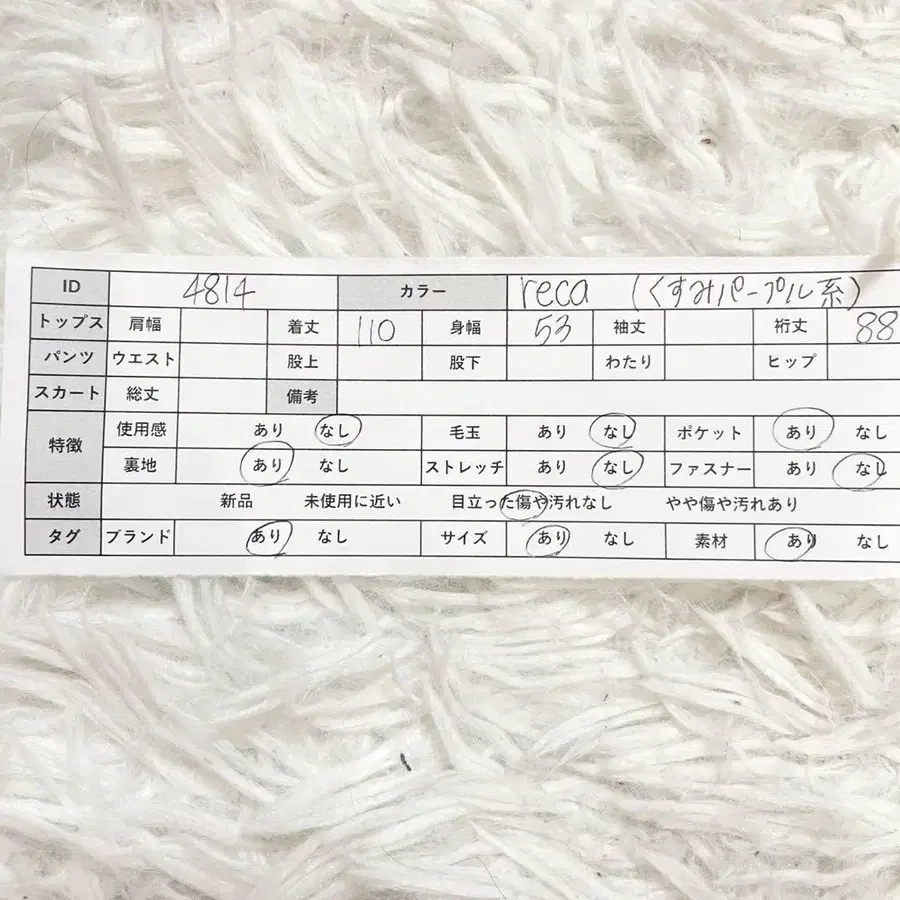 ID 4814 カラー reca (くすみパープル系)
トップス 肩幅 着丈 110 身幅 53 袖丈 裄丈 88
パンツ ウエスト 股上 股下 わたり ヒップ
スカート 総丈 備考
特徴 使用感 あり なし 毛玉 あり なし ポケット あり なし
裏地 あり なし ストレッチ あり なし ファスナー あり なし
状態 新品 未使用に近い 目立った傷や汚れなし やや傷や汚れあり
タグ ブランド あり なし サイズ あり なし 素材 あり なし